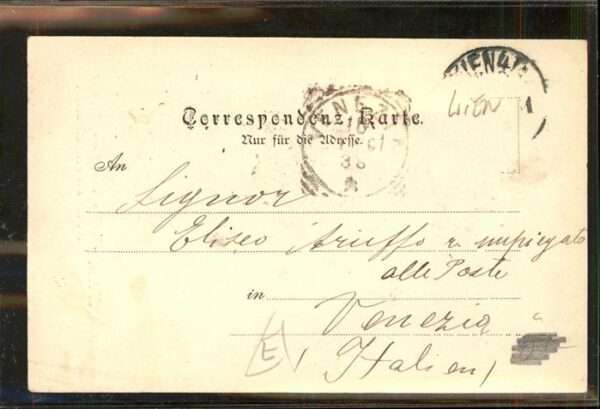 WIEN 4/1
WIEN
1
VENEZIA
Correspondenz-Karte.
Nur für die Adresse.
An
Signor
Eliseo Aruffo impiegato
alle Poste
in
Venezia
(Italien)
E